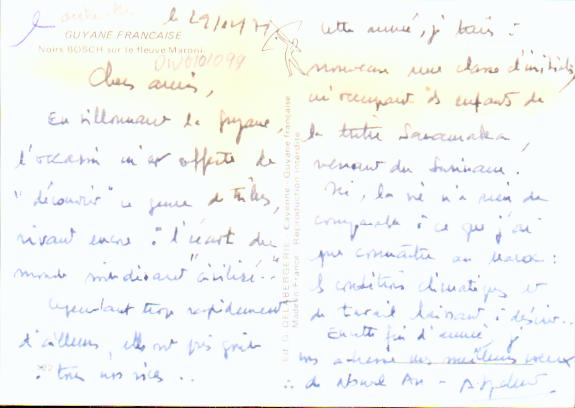 le 29/12/71
GUYANE FRANCAISE
Noirs BOSCH sur le fleuve Maroni
DW0101099
Chers amis,
En sillonnant la Guyane,
l'occasion m'est offerte de
"découvrir" ce genre de tribus,
vivant encore à l'écart du
monde soi-disant "civilisé"..
Cependant trop rapidement
d'ailleurs, elles ont pris goût
à tous nos vices..
Ed. G. DELABERGERIE - Cayenne - Guyane française
Made in France - Reproduction interdite
Cette année, je fais à
nouveau une classe d'initiation
m'occupant d'enfants de
la tribu Saramaka,
venant du Surinam.
Ici, la vie n'a rien de
comparable à ce que j'ai
pu connaître au Maroc :
les conditions climatiques et
de travail laissant à désirer..
En cette fin d'année, je
vous adresse mes meilleurs voeux
de Nouvel An -